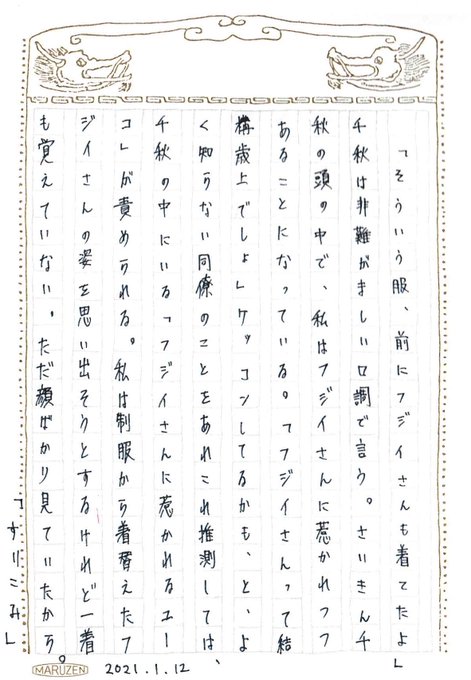 「そういう服、前にフジイさんも着てたよ」
千秋は非難がましい口調で言う。さいきん千
秋の頭の中で、私はフジイさんに惹かれつつ
あることになっている。「フジイさんって結
構歳上でしょ」ケッコンしてるかも、と、よ
く知らない同僚のことをあれこれ推測しては、
千秋の中にいる「フジイさんに惹かれるユー
コ」が責められる。私は制服から着替えたフ
ジイさんの姿を思い出そうとするけれど一着
も覚えていない。ただ顔ばかり見ていたから。
「すりこみ」
MARUZEN
2021.1.12